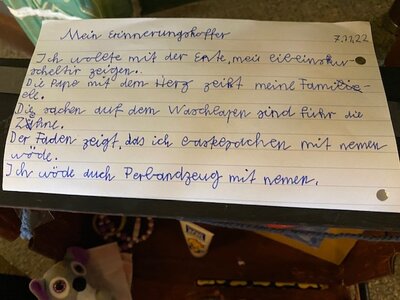 Mein Erinnerungskoffer 7.11.22
Ich wollte mit der Ente, mein
scheltir zeigen.
Die Papa mit dem Herz zeikt meine Familie
elle.
Die sachen auf dem Waschlapen sind führ die
Zähne.
Der Faden zeigt, das ich mit nemen
wöde.
Ich wöde auch Verbandzeug mit nemen.